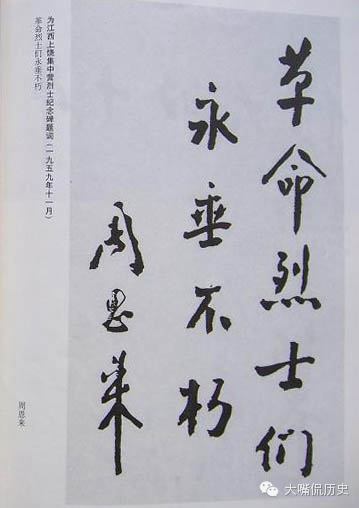 革命烈士们
永垂不朽
周恩来
为江西上饶集中营烈士纪念碑题词(一九五九年十一月)
革命烈士们永垂不朽
周恩来
大嘴侃历史